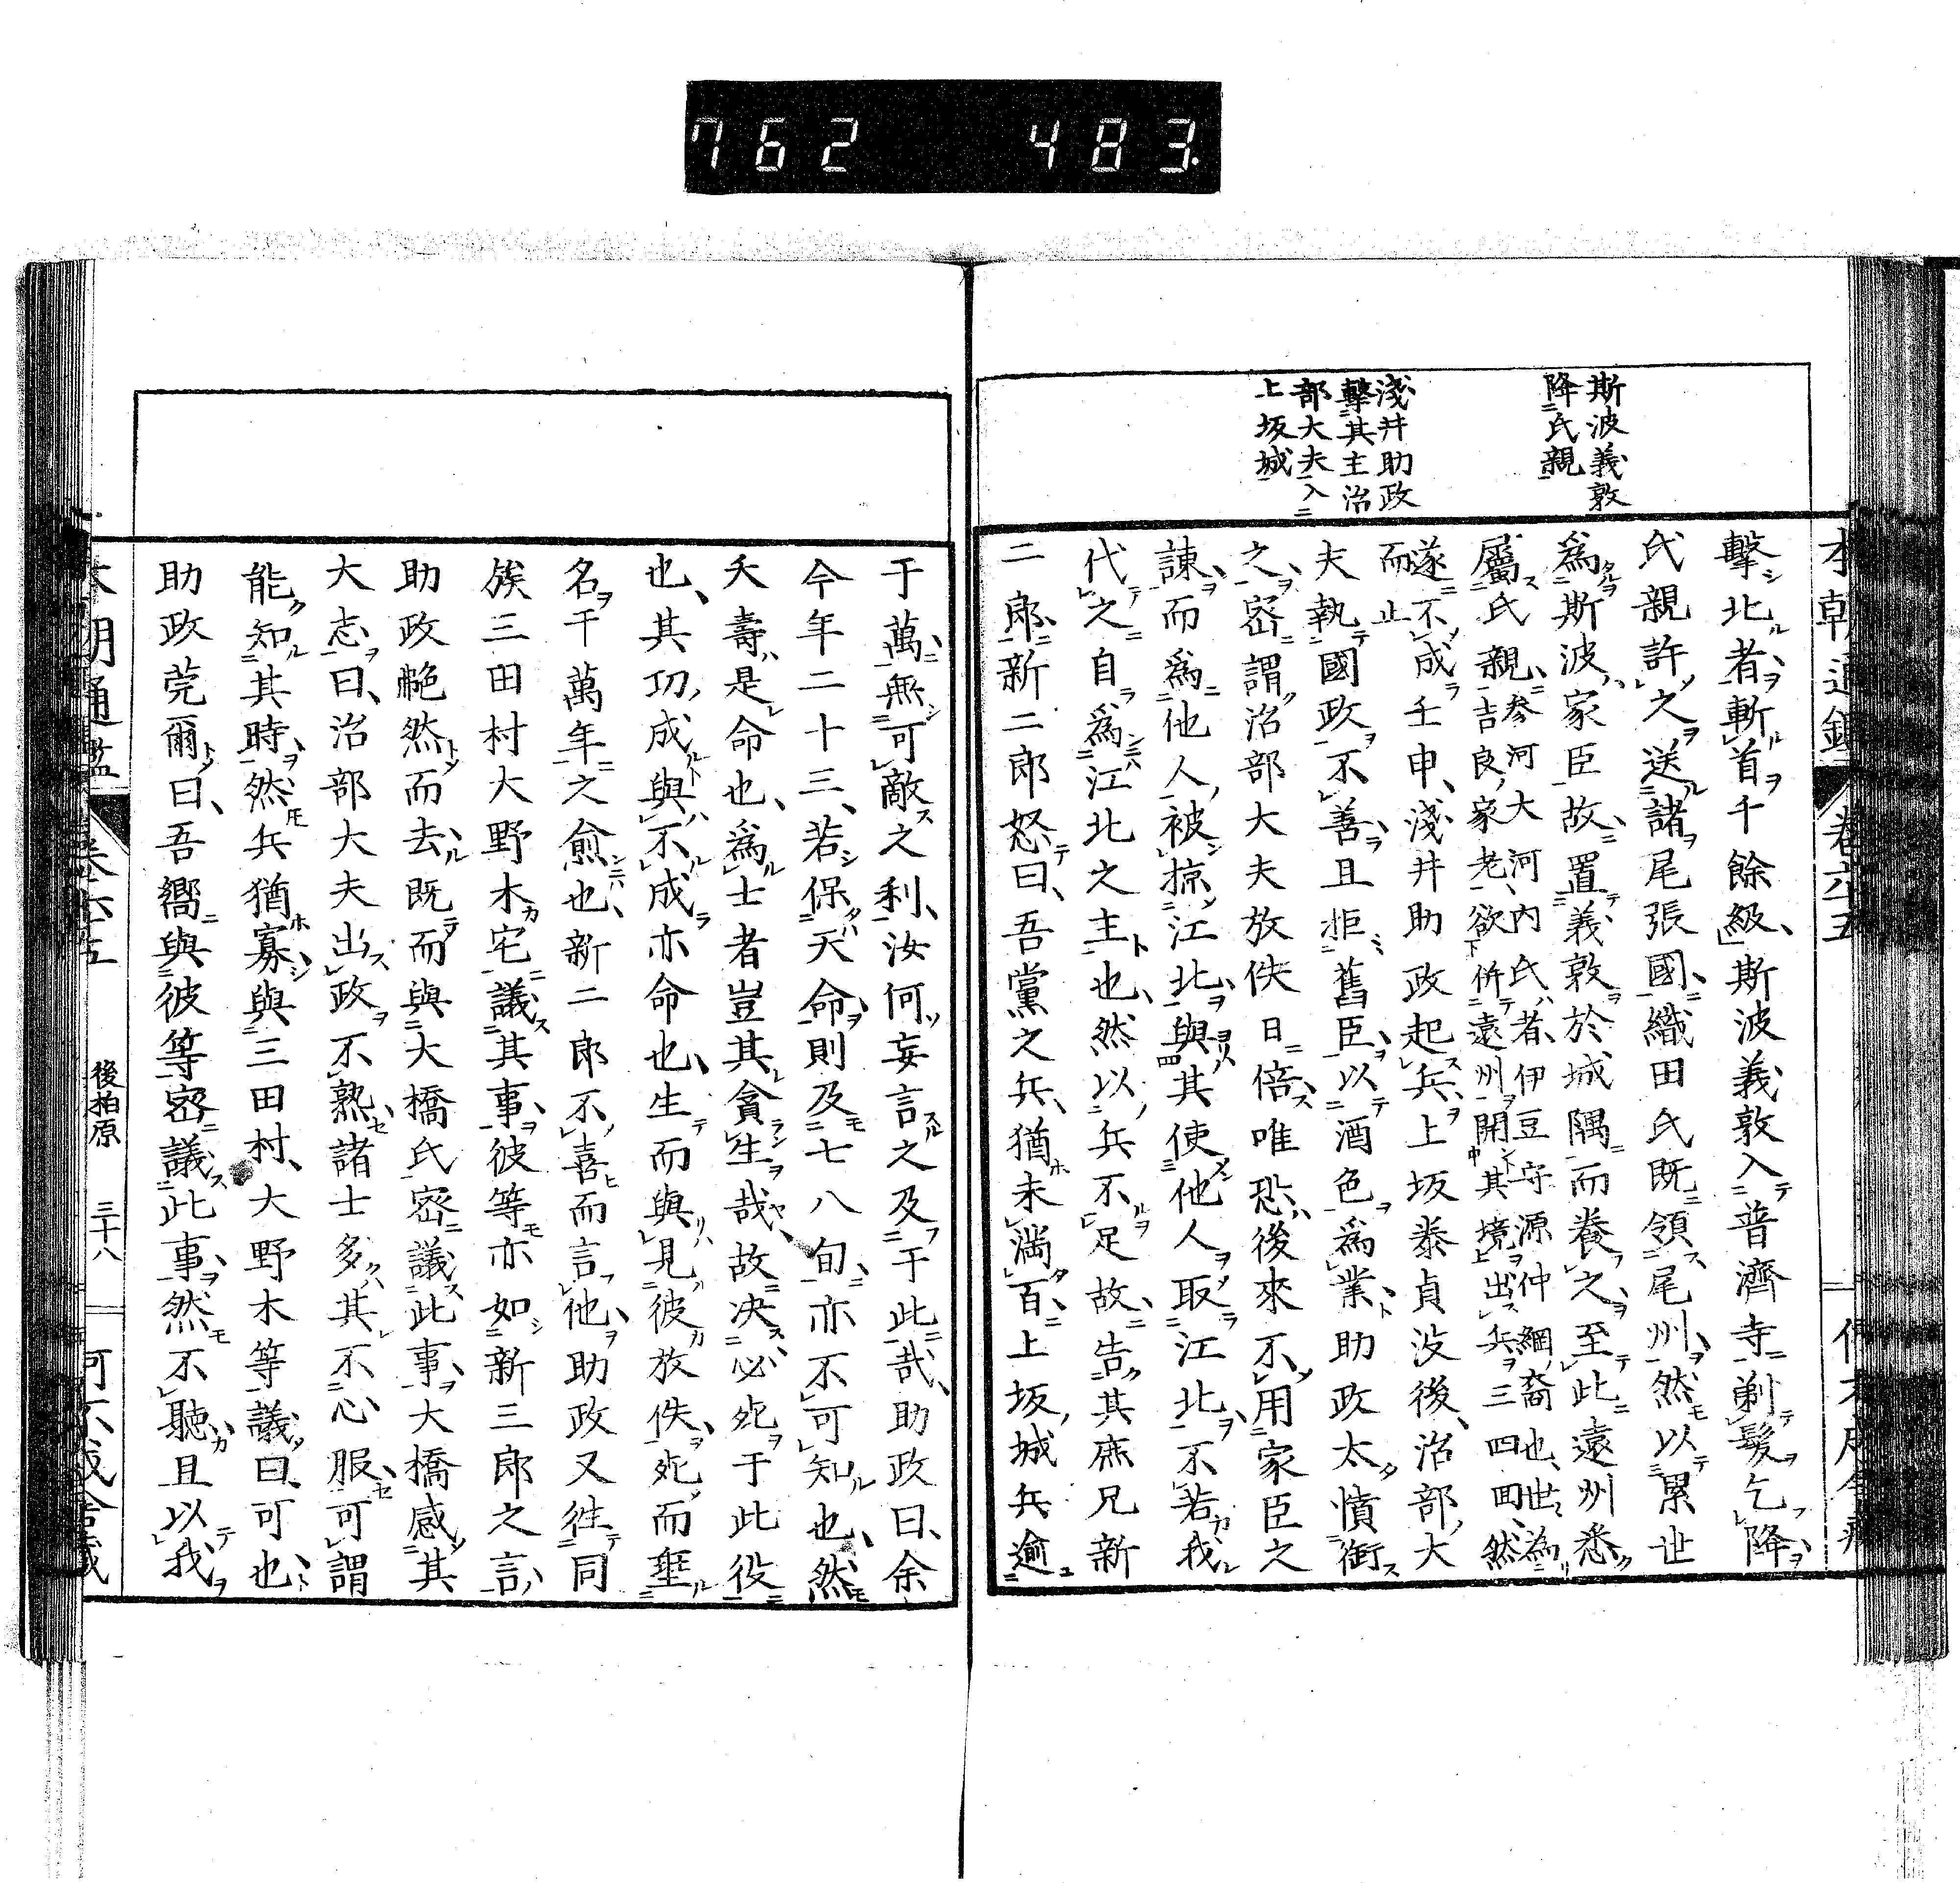 762 483.
斯波義敦
降氏親
淺井助政
擊其主治
部大夫入
上坂城
擊北者斬首千餘級斯波義敦入普濟寺剃髮乞降
氏親許之送諸尾張國織田氏既領尾州然以累世
爲斯波家臣故置義敦於城隅而養之至此遠州悉
屬氏親參河大河內氏者伊豆守源仲綱裔也世爲
吉良家老欲併遠州開其境出兵三四回然
遂不成
而止
壬申淺井助政起兵上坂泰貞沒後治部大
夫執國政不善且拒舊臣以酒色爲業助政太憤銜
之密謂治部大夫放佚日倍唯恐後來不用家臣之
諫而爲他人被掠江北與其使他人取江北不若我
代之自爲江北之主也然以兵不足故告其庶兄新
二郎新二郎怒曰吾黨之兵猶未滿百上坂城兵逾
于萬無可敵之利汝何妄言之及于此哉助政曰余
今年二十三若保天命則及七八旬亦不可知也然
夭壽是命也爲士者豈其貪生哉故決必死于此役
也其功成與不成亦命也生而與見彼放佚死而垂
名千萬年之愈也新二郎不喜而言他助政又往同
族三田村大野木宅議其事彼等亦如新三郎之言
助政艴然而去既而與大橋氏密議此事大橋感其
大志曰治部大夫出政不熟諸士多其不心服可謂
能知其時然兵猶寡與三田村大野木等議曰可也
助政莞爾曰吾嚮與彼等密議此事然不聽且以我
後柏原 三十八